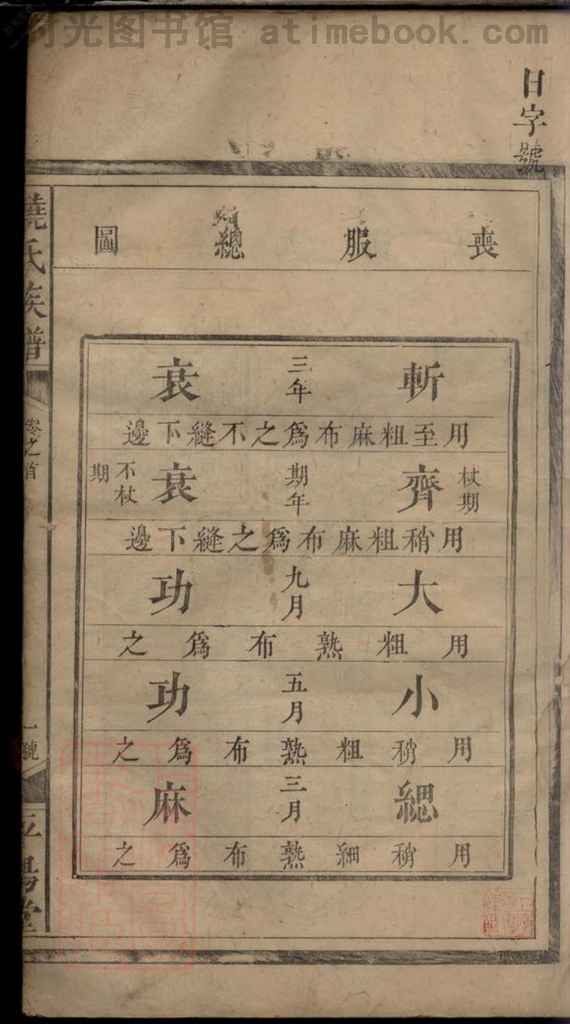 时光图书馆 atimebook.com
日字號
喪服總圖
斬 三年 衰
用至粗麻布為之不縫下邊
杖期 齊 期年 衰 不杖期
用稍粗麻布為之縫下邊
大 九月 功
用粗熟布為之
小 五月 功
用稍粗熟布為之
緦 三月 麻
用稍細熟布為之
饒氏族譜
卷之首
一號